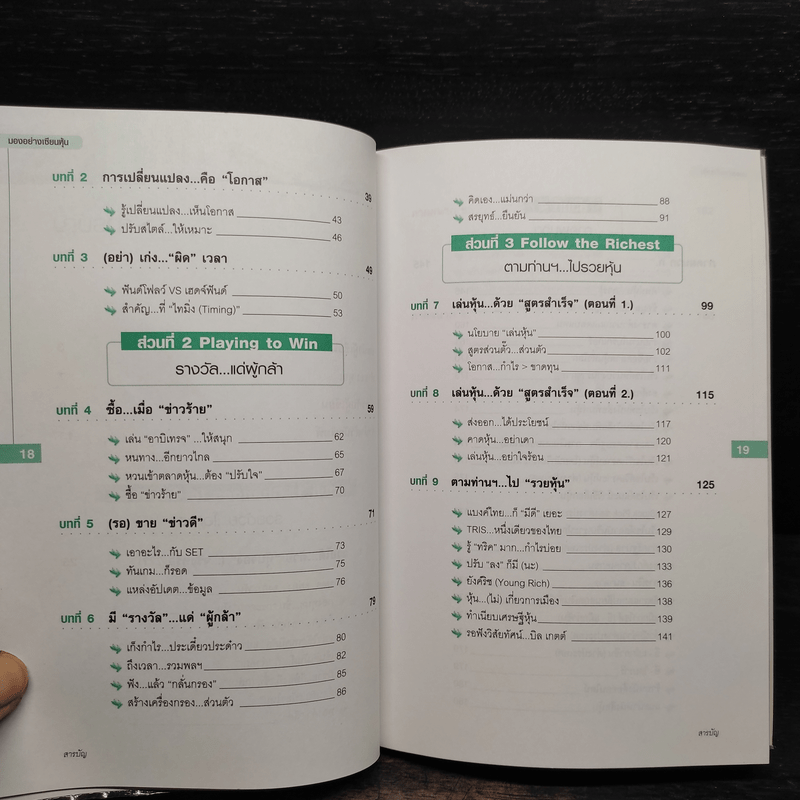 มองอย่างเซียนหุ้น
บทที่ 2 การเปลี่ยนแปลง...คือ "โอกาส" 36
รู้เปลี่ยนแปลง...เห็นโอกาส 43
ปรับสไตล์...ให้เหมาะ 46
บทที่ 3 (อย่า) เก่ง..."ผิด" เวลา 49
ฟันด์โฟลว์ VS เฮดจ์ฟันด์ 50
สำคัญ...ที่ "ไทมิ่ง (Timing)" 53
ส่วนที่ 2 Playing to Win
รางวัล...แด่ผู้กล้า
บทที่ 4 ซื้อ...เมื่อ "ข่าวร้าย" 59
เล่น "อาบิเทรจ" ...ให้สนุก 62
หนทาง...อีกยาวไกล 65
หวนเข้าตลาดหุ้น...ต้อง "ปรับใจ" 67
ซื้อ "ข่าวร้าย" 70
18
บทที่ 5 (รอ) ขาย "ข่าวดี" 71
เอาอะไร...กับ SET 73
ทันเกม...ก็รอด 75
แหล่งอัปเดต...ข้อมูล 76
บทที่ 6 มี "รางวัล"...แด่ "ผู้กล้า" 79
เก็งกำไร...ประเดี๋ยวประด๋าว 80
ถึงเวลา...รวมพลฯ 82
ฟัง...แล้ว "กลั่นกรอง" 85
สร้างเครื่องกรอง...ส่วนตัว 86
สารบัญ
คิดเอง...แม่นกว่า 88
สรยุทธ์...ยืนยัน 91
ส่วนที่ 3 Follow the Richest
ตามท่านฯ...ไปรวยหุ้น
บทที่ 7 เล่นหุ้น...ด้วย "สูตรสำเร็จ" (ตอนที่ 1.) 99
นโยบาย "เล่นหุ้น" 100
สูตรส่วนตั๊ว...ส่วนตัว 102
โอกาส...กำไร > ขาดทุน 111
บทที่ 8 เล่นหุ้น...ด้วย "สูตรสำเร็จ" (ตอนที่ 2.) 115
ส่งออก...ได้ประโยชน์ 117
คาดหุ้น...อย่าเดา 120
เล่นหุ้น...อย่าใจร้อน 121
19
บทที่ 9 ตามท่านฯ...ไป "รวยหุ้น" 125
แบงค์ไทย...ก็ "มีดี" เยอะ 127
TRIS...หนึ่งเดียวของไทย 129
รู้ "ทริค" มาก...กำไรบ่อย 130
ปรับ "ลง" ก็มี (นะ) 133
ยังค์ริช (Young Rich) 136
หุ้น...(ไม่) เกี่ยวการเมือง 138
ทำเนียบเศรษฐีหุ้น 139
รอฟังวิสัยทัศน์...บิล เกตต์ 141
สารบัญ